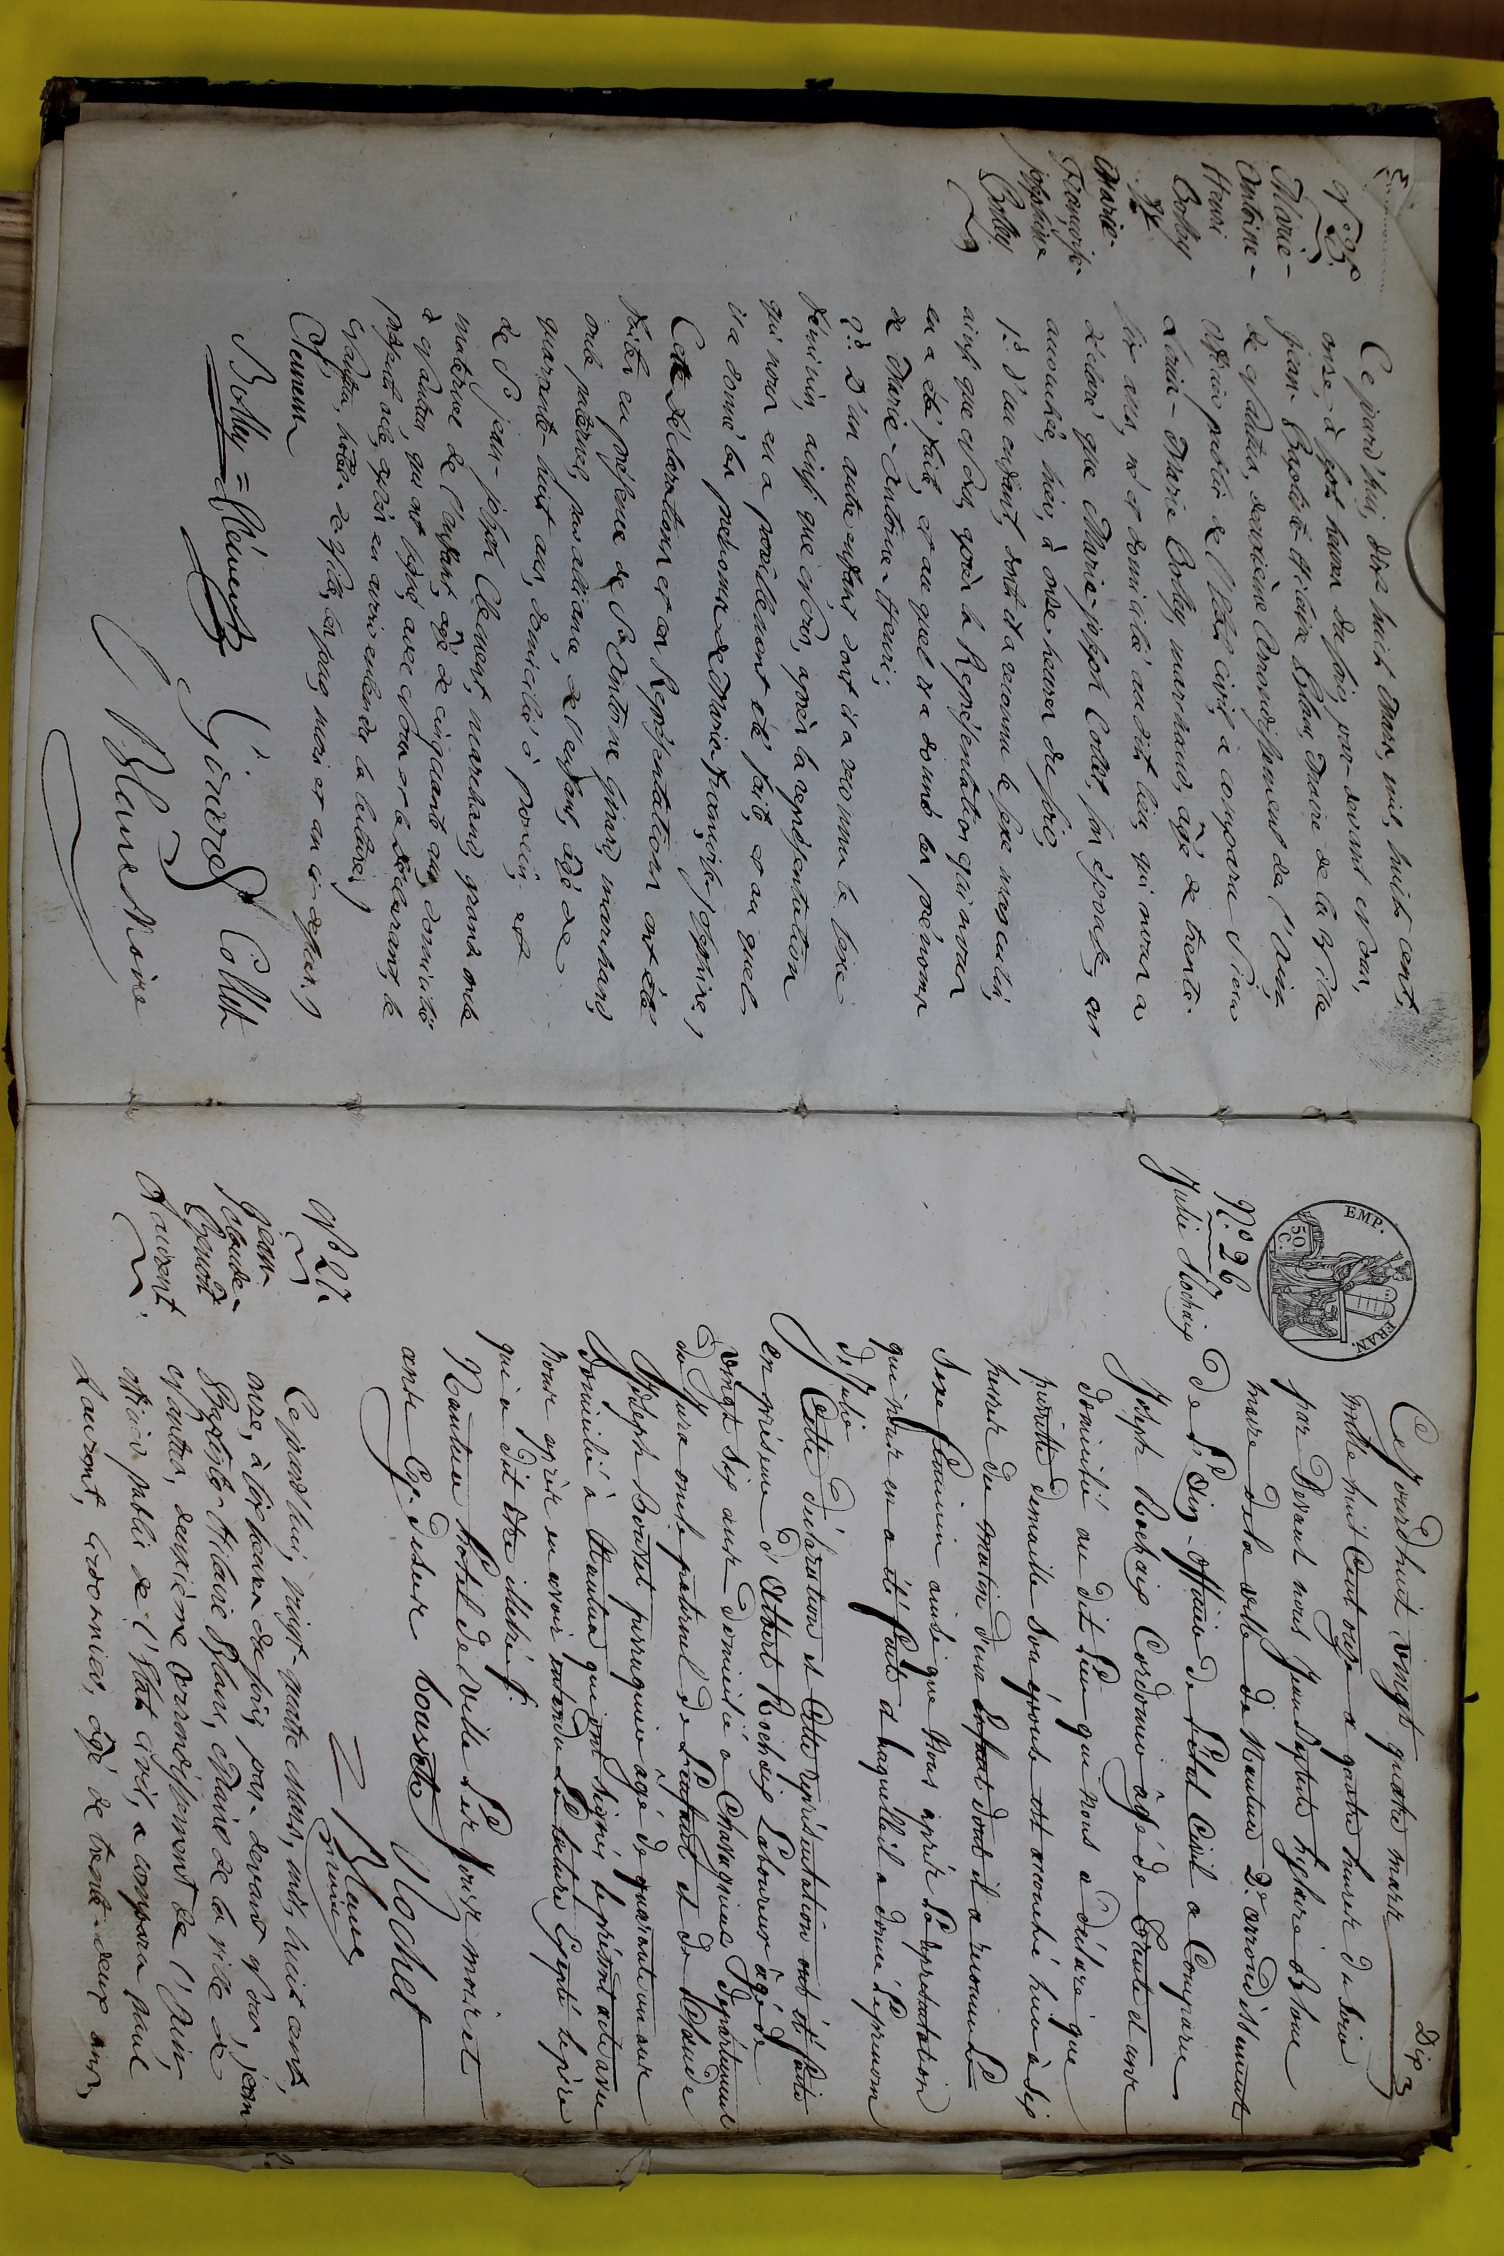 N.° 25.
Marie-
Antoine-
Henri
Bolley
et
Marie-
Françoise-
joséphine
Bolley
Cejourd'hui dix huit Mars, mil, huit cent,
onze, à sept heures du soir, par-devant Nous,
jean-Baptiste Hilaire Blanc, Maire de la Ville
de Nantua, deuxième Arrondissement de l'Ain,
officier public de l'Etat civil, a comparu Sieur
Louis-Marie Bolley, marchand, âgé de trente-
six ans, et domicilié audit lieu, qui nous a
déclaré que Marie-joseph Collet, son épouse, est
accouchée, hier, à onze heures du soir,
1.° d'un enfant, dont il a reconnu le sexe masculin,
ainsi que Nous, après la Représentation qui nous
en a été faite, et auquel il a donné les prénoms
de Marie-Antoine-Henri;
2.° D'un autre enfant dont il a reconnu le sexe
féminin, ainsi que Nous, après la représentation
qui nous en a pareillement été faite, et au quel
il a donné les prénoms de Marie-françoise-joséphine,
Cette déclaration et ces Représentations ont été
faites en présence de Sr. Antoine Girard, marchand,
oncle paternel, par alliance, de l'enfant, âgé de
quarante-huit ans, domicilié à poncin, et
de Sr. jean-joseph Clément, marchand, grand oncle
maternel de l'enfant, âgé de cinquante ans, domicilié
à Nantua, qui ont signé, avec Nous et le déclarant, le
présent acte, après en avoir entendu la lecture,
Nantua, hôtel de Ville, les jour, mois et an ci-dessus,
Clément
Bolley = Clément Girard Collet
Blanc Maire
EMP.
FRAN.
50
C.
Dix 3
N.° 26
Julie Rochaix
Cejourdhuit vingt quatre mars
mille huit Cent onze a quatre heures du soir
par Devant nous Jean Baptiste hylaire Blanc
maire de la ville de Nantua 2.e arrondissement
De L'Ain, officier de L'état Civil a Comparu
Joseph Rochaix Cordonnier âgé de Trente et un
domicilié au dit Lieu qui nous a déclaré que
pierrette demaille son épouse est accouchée hier à six
heures du matin d'un Enfant dont il a reconnu Le
sexe féminin ainsi que Nous après La représentation
qui nous en a été faite et laquelle il a donné Le prenom
de Julie
Cette déclaration et cette représentation ont été faites
en présence d'Albert Rochaix Laboureur âgé de
vingt six ans domicilié a Département
du Jura oncle paternel de L'enfant et de Claude
Joseph Bousset perruquier agé de quarante un ans
domicilié à Nantua qui ont signé le présent acte avec
nous après en avoir entendu Le lecture Excepté le père
qui a dit être illétré.
Nantua hotel de ville Les Jours mois et
ant Cy-dessus Bousset Rochet
Blanc
maire
N.° 27.
jean-
Claude-
Benoit
Laurent
Cejourd'hui vingt-quatre Mars, mil, huit cent,
onze, à six heures du soir, par-devant Nous, jean
Baptiste-Hilaire Blanc, Maire de la ville de
Nantua, deuxième Arrondissement de l'Ain,
officier public de l'Etat civil, a comparu paul
Laurent, Cordonnier, âgé de trente-deux ans,